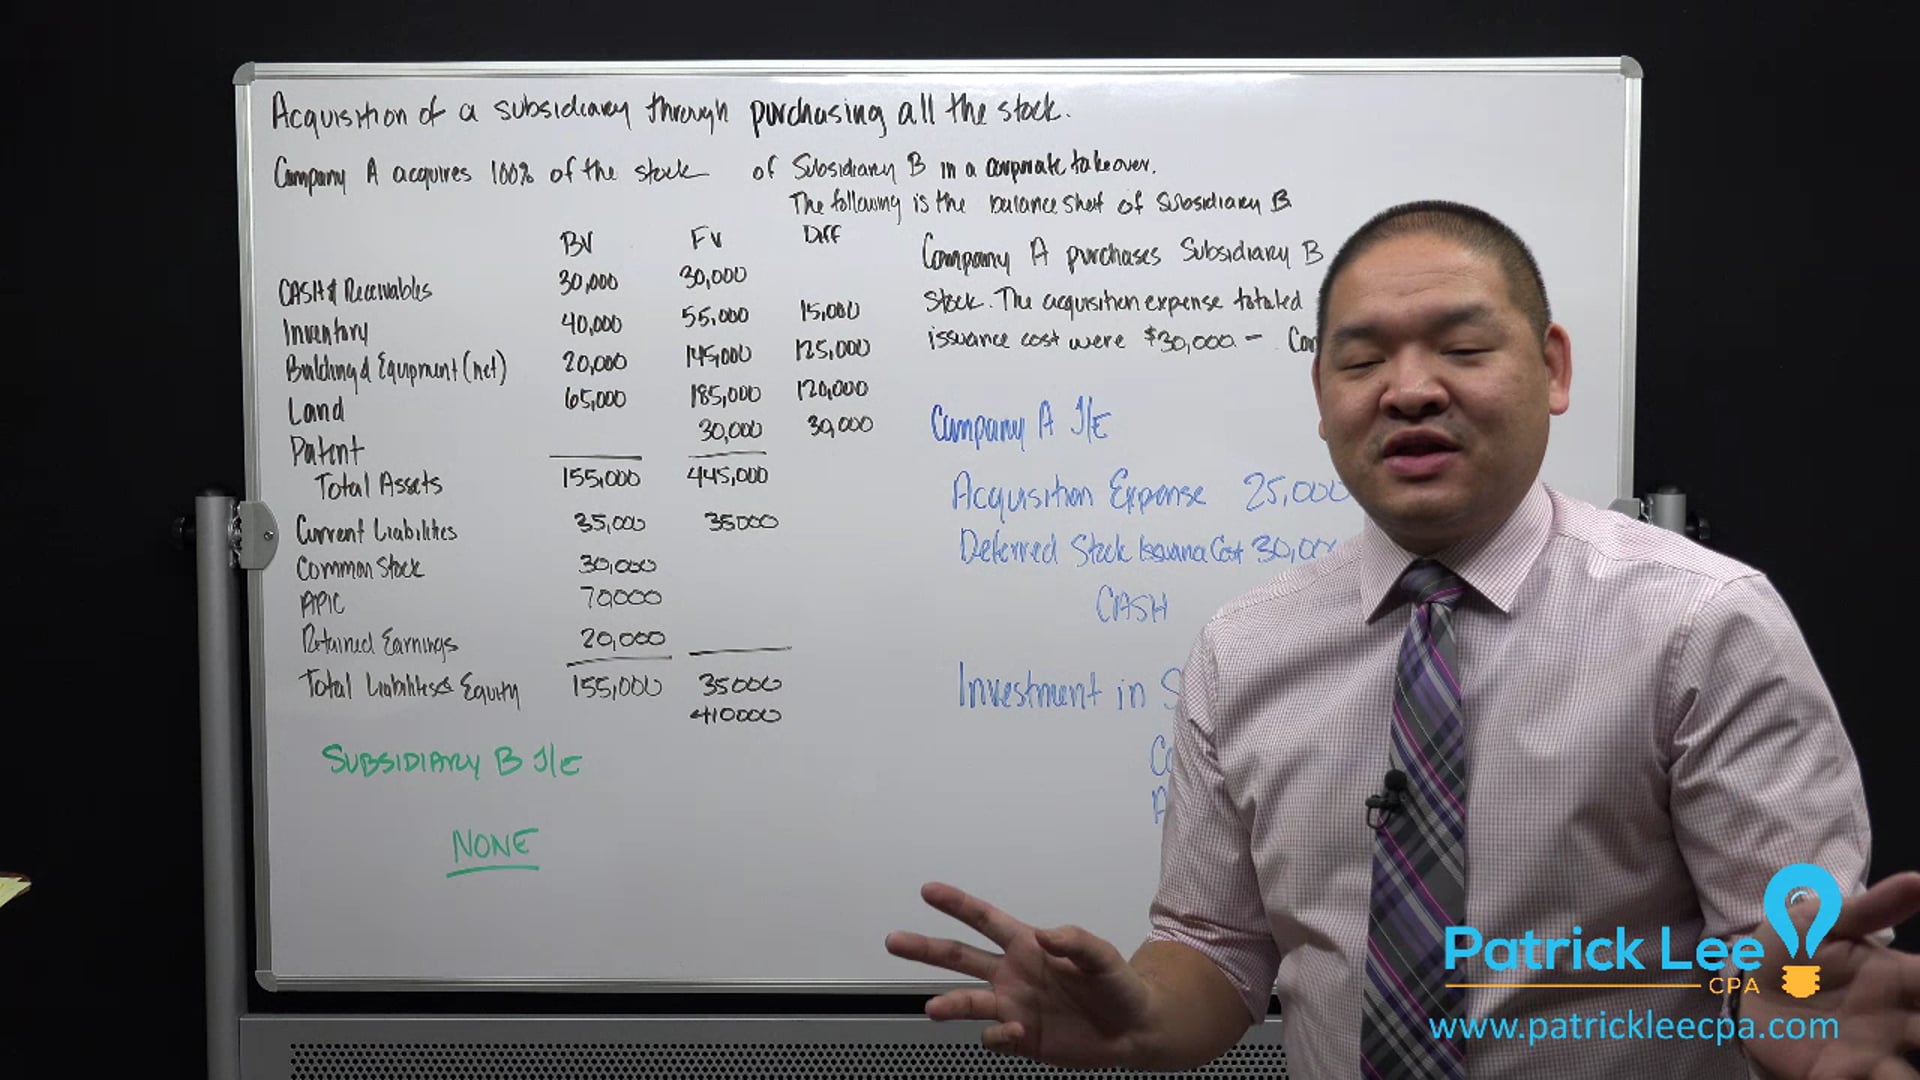 Acquisition of a subsidiary through purchasing all the stock.
Company A acquires 100% of the stock of Subsidiary B in a corporate takeover.
The following is the balance sheet of Subsidiary B
BV FV Diff
CASH & Receivables 30,000 30,000
Inventory 40,000 55,000 15,000
Building & Equipment (net) 20,000 145,000 125,000
Land 65,000 185,000 120,000
Patent 30,000 30,000
Total Assets 155,000 445,000
Current Liabilities 35,000 35000
Common Stock 30,000
APIC 70000
Retained Earnings 20,000
Total Liabilities & Equity 155,000 35000
410000
SUBSIDIARY B J/E
NONE
Company A purchases Subsidiary B
Stock. The acquisition expense totaled
issuance cost were $30,000 -
Company A J/E
Acquisition Expense 25,000
Deferred Stock Issuance Cost 30,000
CASH
Investment in S
Co
A
Patrick Lee
CPA
www.patrickleecpa.com